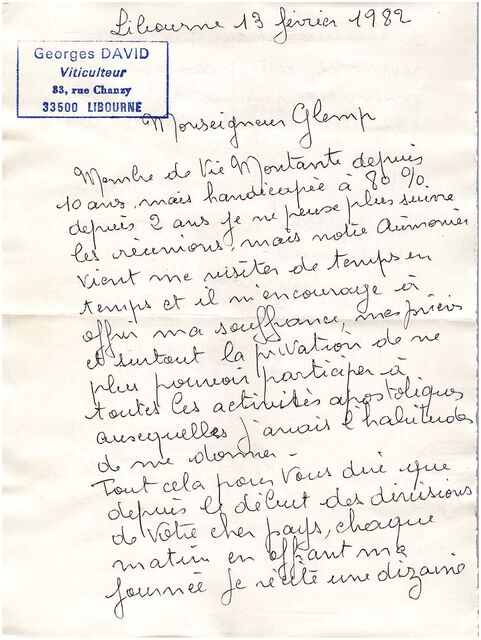 Libourne 13 février 1982
Georges DAVID
Viticulteur
83, rue Chanzy
33500 LIBOURNE
Monseigneur Glemp
Membre de Vie Montante depuis
10 ans, mais handicapée à 80 %
depuis 2 ans je ne peux plus suivre
les réunions, mais notre Aumonier
vient me visiter de temps en
temps et il m'encourage à
offrir ma souffrance, mes prières
et surtout la privation de ne
plus pouvoir participer à
toutes les activités apostoliques
auxquelles j'avais l'habitude
de me donner -
Tout cela pour vous dire que
depuis le début des divisions
de votre cher pays, chaque
matin en offrant ma
journée je récite une dizaine